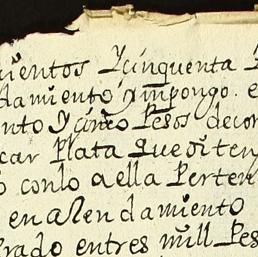 uientos Ycinquenta P
damiento ympongo. e
nto Y cinco Pesos decor
car Plata que di ten
o conlo a ella Perten
en aRendamiento
Grado entres mill Pes